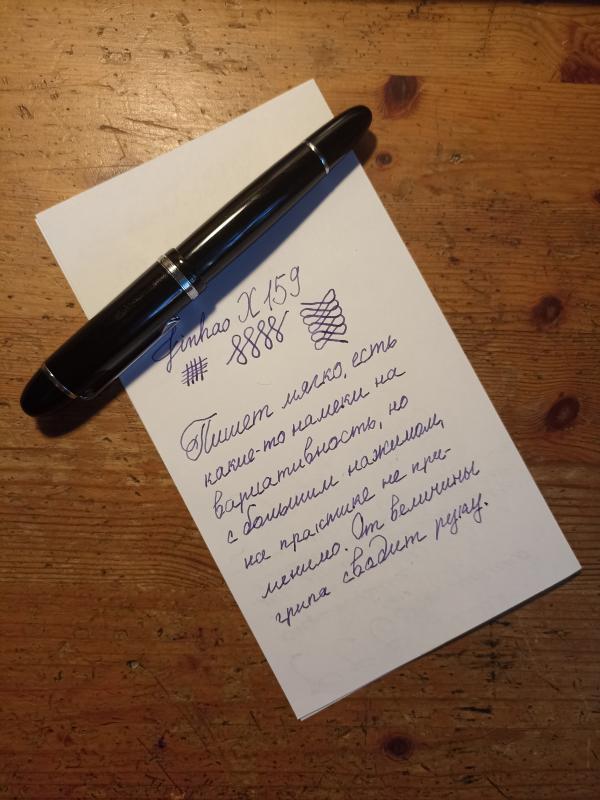 Jinhao X159
Пишет мягко, есть
какие-то намеки на
вариативность, но
с большим нажимом,
на практике не при-
менимо. От величины
грипа сводит руку.